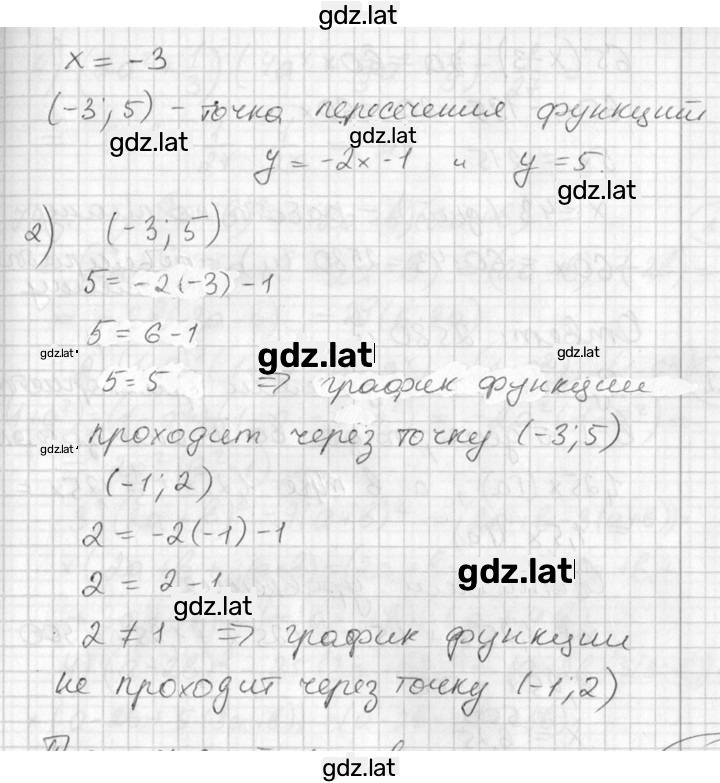 gdz.lat
x = -3
(-3; 5) - точка пересечения функций
gdz.lat gdz.lat
y = -2x -1 и y = 5.
gdz.lat
2) (-3; 5)
5 = -2(-3) -1
5 = 6 -1
gdz.lat gdz.lat gdz.lat
5 = 5 => график функции
проходит через точку (-3; 5)
gdz.lat
(-1; 2)
2 = -2(-1) -1
gdz.lat
2 = 2 -1
gdz.lat
2 ≠ 1 => график функции
не проходит через точку (-1; 2)
gdz.lat